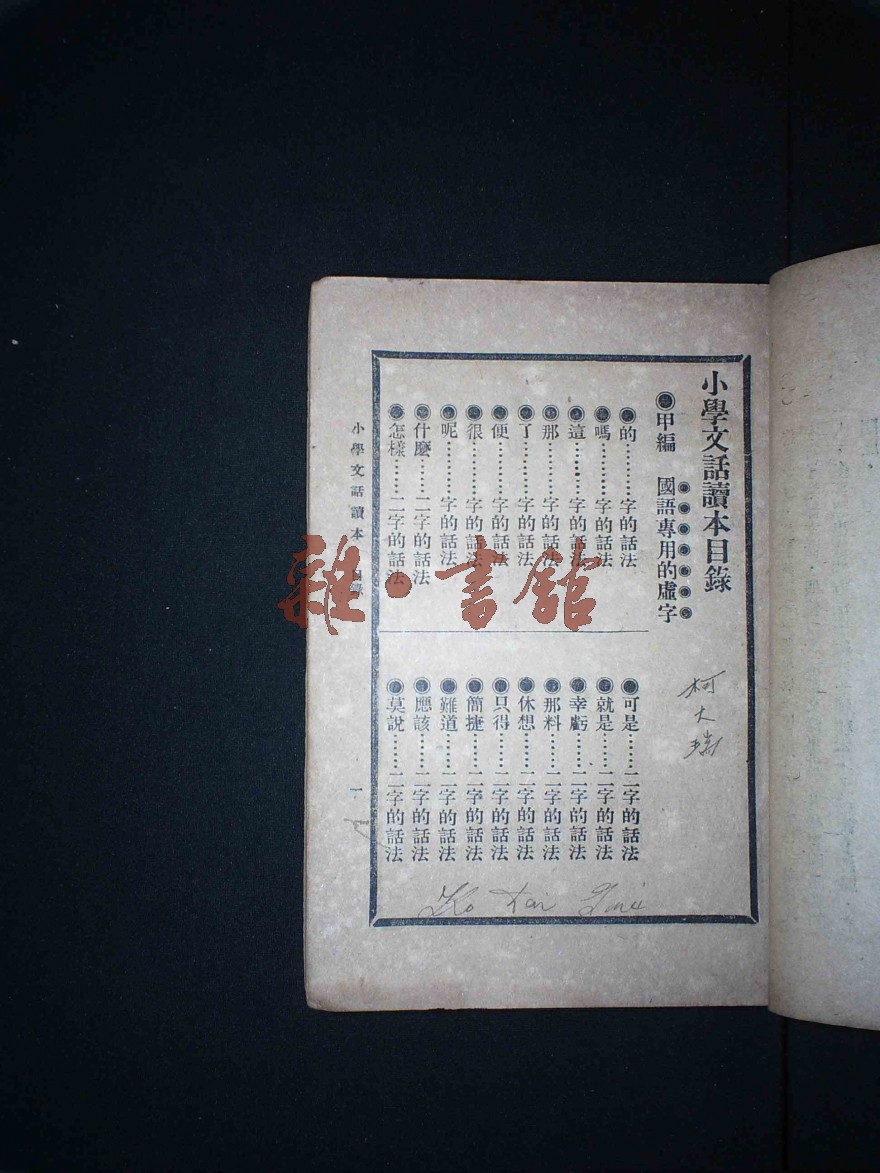 小學文話讀本目錄
◉甲編 國語專用的虛字
◉的………字的話法
◉嗎………字的話法
◉這………字的話法
◉那………字的話法
◉了………字的話法
◉便………字的話法
◉很………字的話法
◉呢………字的話法
◉什麽……二字的話法
◉怎樣……二字的話法
◉可是……二字的話法
◉就是……二字的話法
◉幸虧……二字的話法
◉那料……二字的話法
◉休想……二字的話法
◉只得……二字的話法
◉簡捷……二字的話法
◉難道……二字的話法
◉應該……二字的話法
◉莫説……二字的話法
小學文話讀本 目錄
一
柯大瑞
Ko Tai
雜·書舘